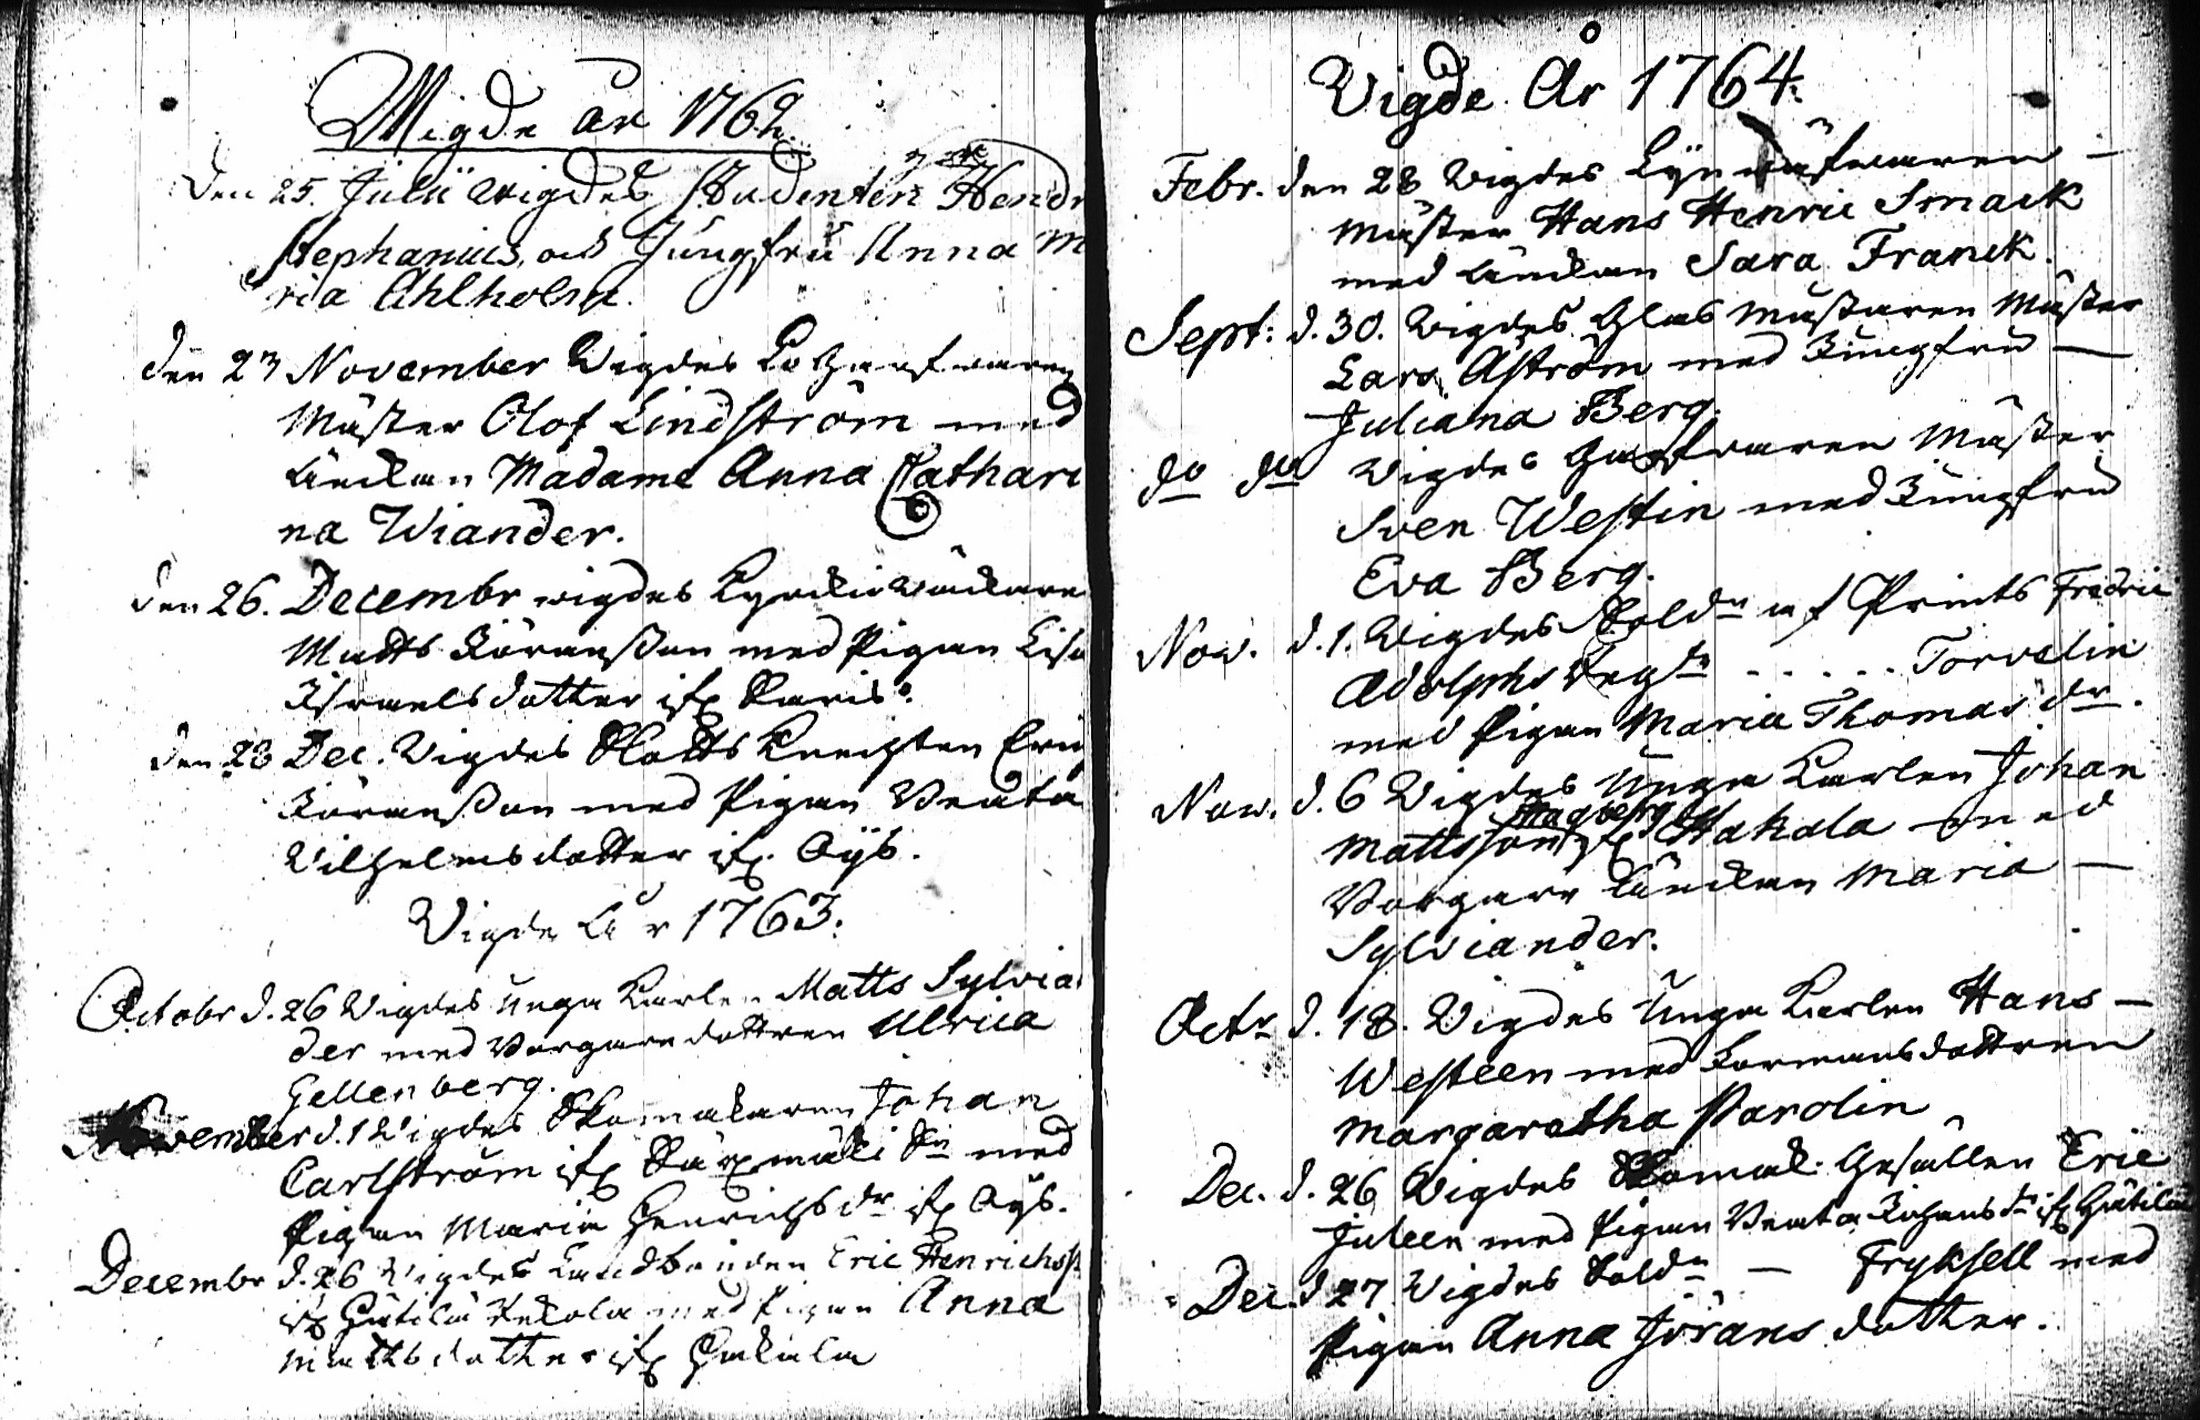 Wigde år 1762.
den 25. Julii wigdes Studenten Hendr
Stephanius, och Jungfru Anna M
ria Ahlholm.
den 27 November Wigdes
Mäster Olof Lindström med
Änckan Madame Anna Cathari
na Wiander.
den 26. Decembr wigdes Kyrckiowäckare
Matts Jöransson med Pigan Lisa
Israelsdotter ifr. Karis.
den 28 Dec. Wigdes Slotts Knechten Eric
Jöransson med Pigan Beata
Wilhelmsdotter ifr. Öijs.
Vigde Åhr 1763.
Octobr d. 26 Wigdes unga Karlen Matts Sylvia
der med Borgaredottren Ulrica
Gellenberg.
November d. 1 Wigdes Skomakaren Johan
Carlström ifr. Särximäki Sn med
Pigan Maria Henrichsdr ifr. Öijs.
Decembr d. 26 Wigdes Landbonden Eric Henrichss
ifr. Hätilä Pekola med Pigan Anna
Mattsdotter ifr. Hakala
Vigde År 1764.
Febr. den 28 Wigdes
Mäster Hans Henric Smack
med Änckan Sara Franck.
Sept: d. 30. Wigdes Glasmästaren Mäster
Lars Aström med Jungfru
Juliana Berg.
do do Wigdes Garfvaren Mäster
Sven Westin med Jungfru
Eva Berg.
Nov. d. 1. Wigdes Soldn af Prints Fredric
Adolphs Regte ..... Torvelin
med Pigan Maria Thomas dr.
Nov. d. 6 Wigdes Unga Karlen Johan
Hagberg
Mattsson ifr. Hakala med
Borgare Änckan Maria
Sylviander.
Octr d. 18. Wigdes Unga Karlen Hans
Westeen med Formansdottren
Margaretha Parolin
Dec. d. 26 Wigdes Skomak: Gesällen Eric
Juleen med Pigan Beata Johansdr ifr. Hätilä
Dec. d 27 Wigdes Soldn — Fryksell med
Pigan Anna Jörans dotter.